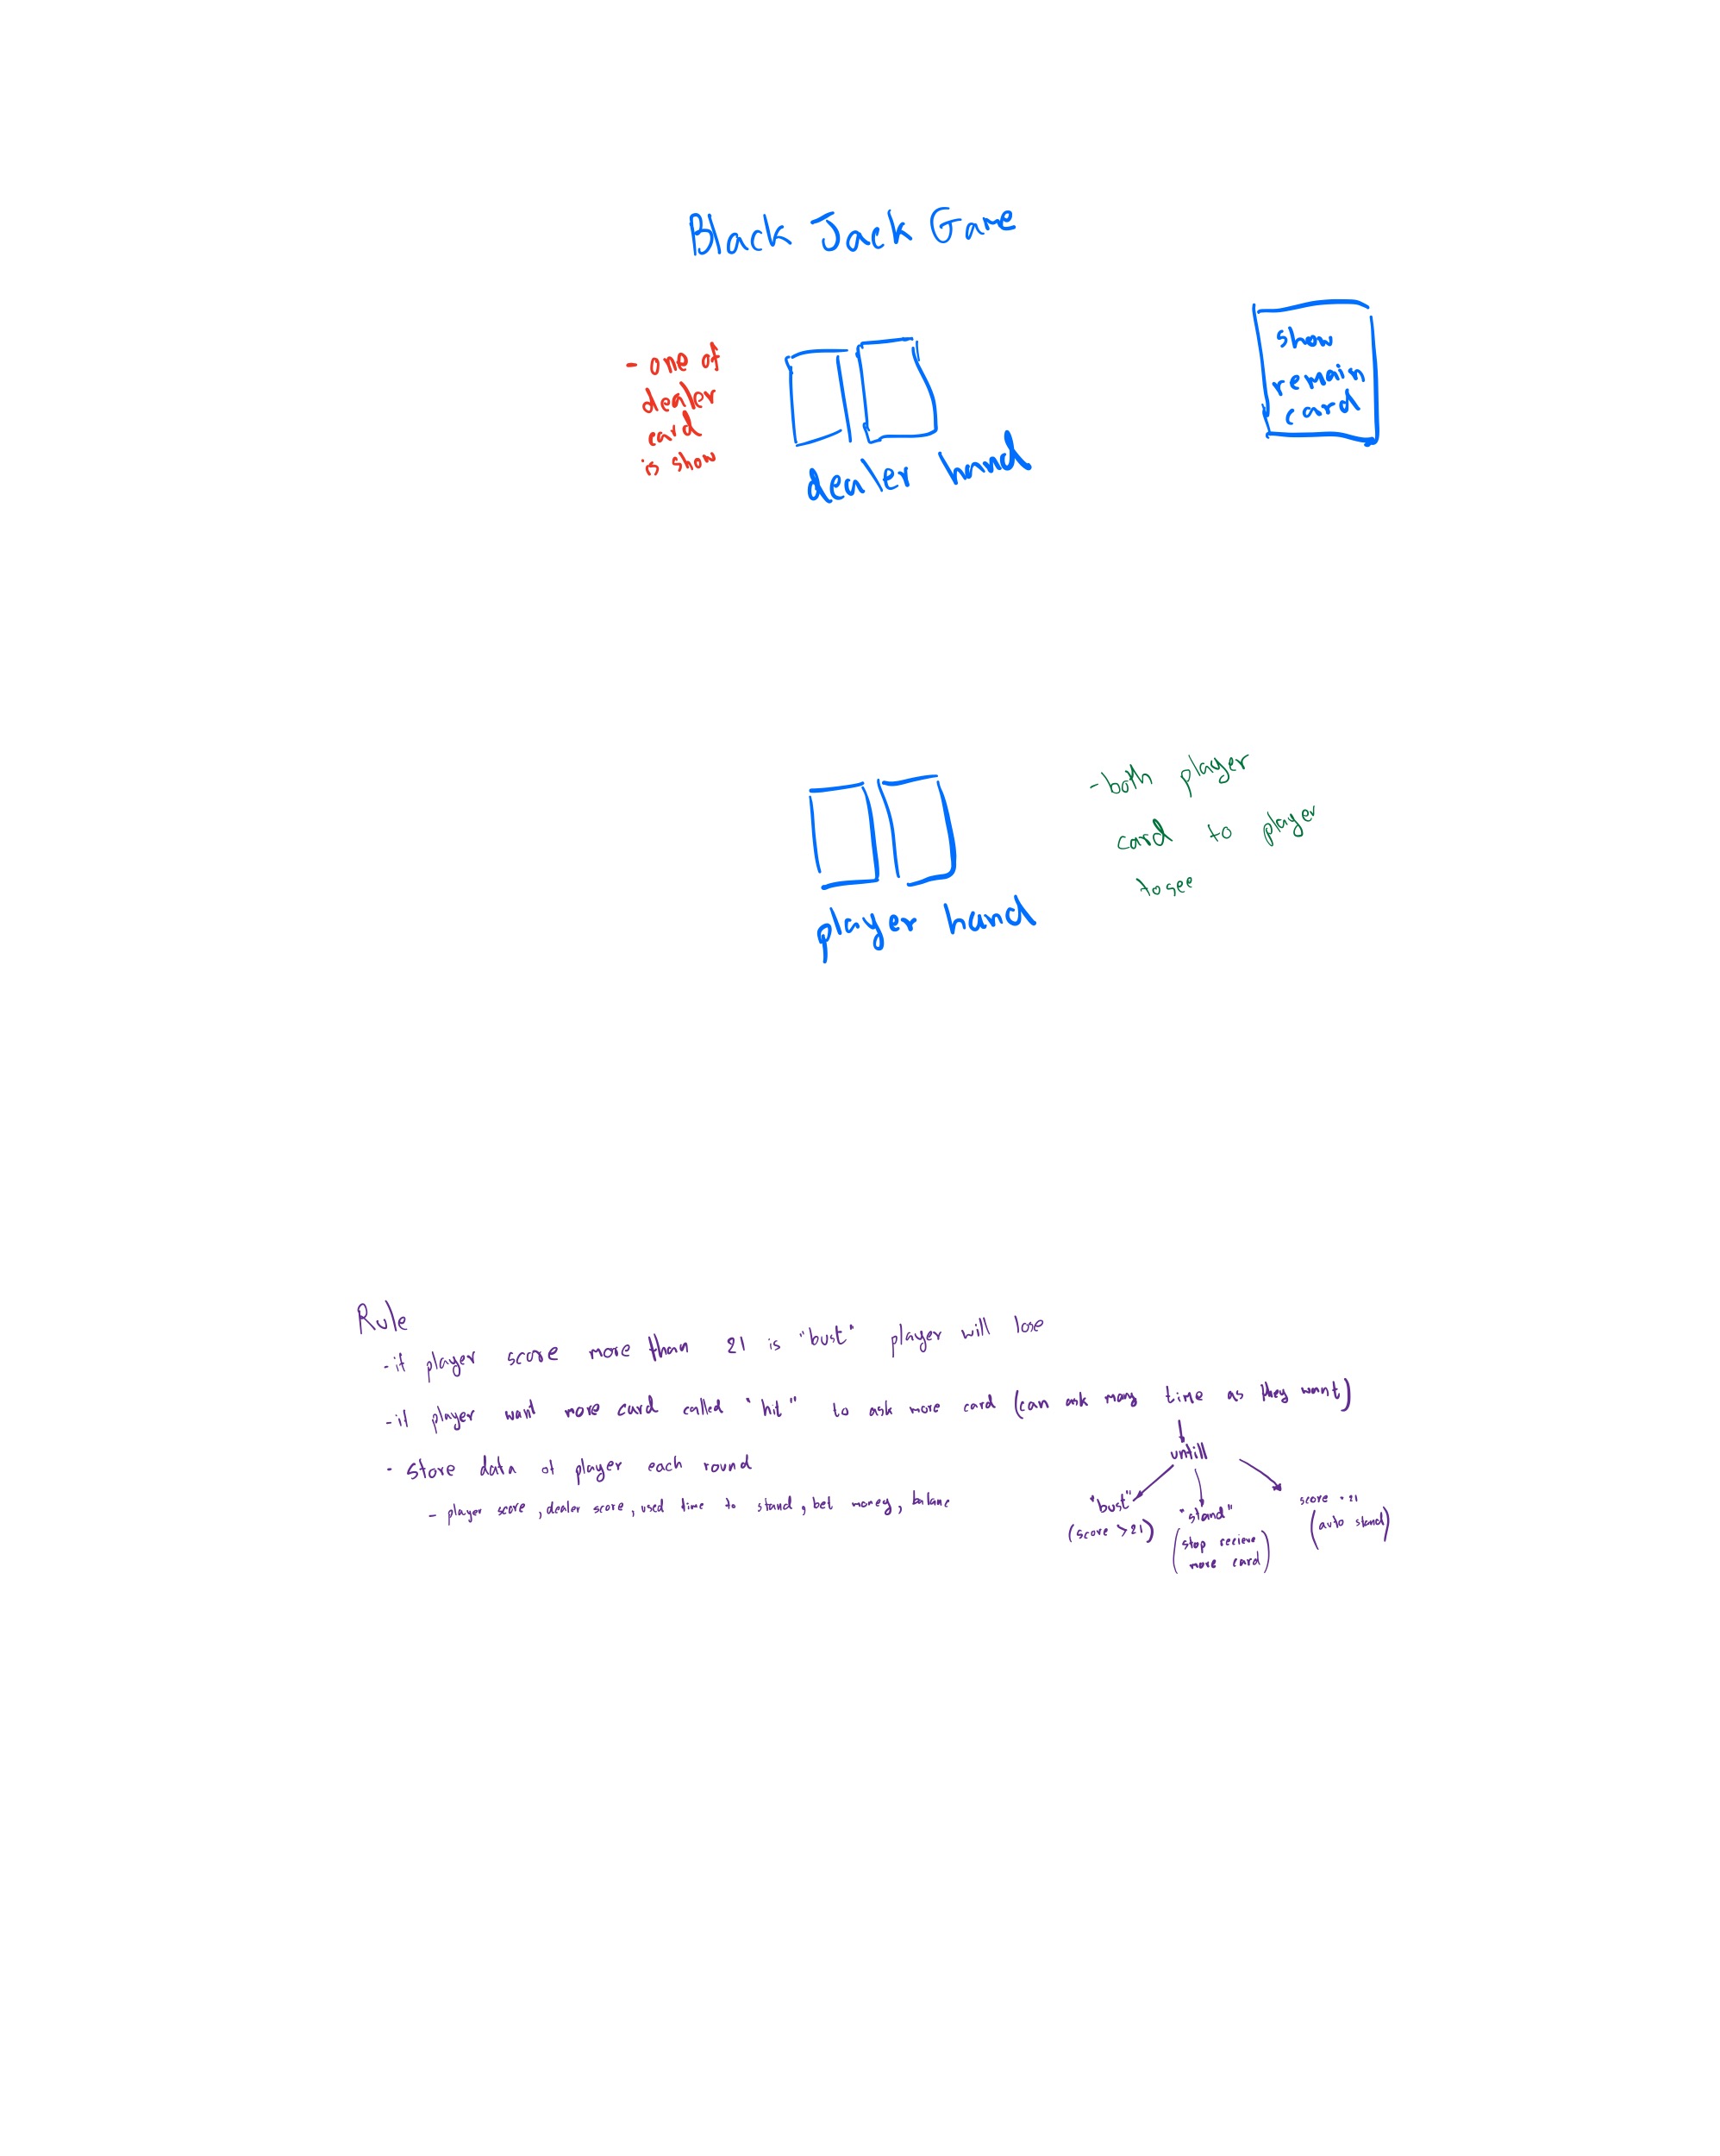 Black Jack Game
- one of
dealer
card
is show
dealer hand
show
remain
card
- both player
card to player
to see
player hand
Rule
- if player score more than 21 is "bust" player will lose
- if player want more card called "hit" to ask more card (can ask many time as they want)
untill
"bust"
(score > 21)
"stand"
(stop recieve
more card)
score = 21
(auto stand)
- store data of player each round
- player score, dealer score, used time to stand, bet money, balanc